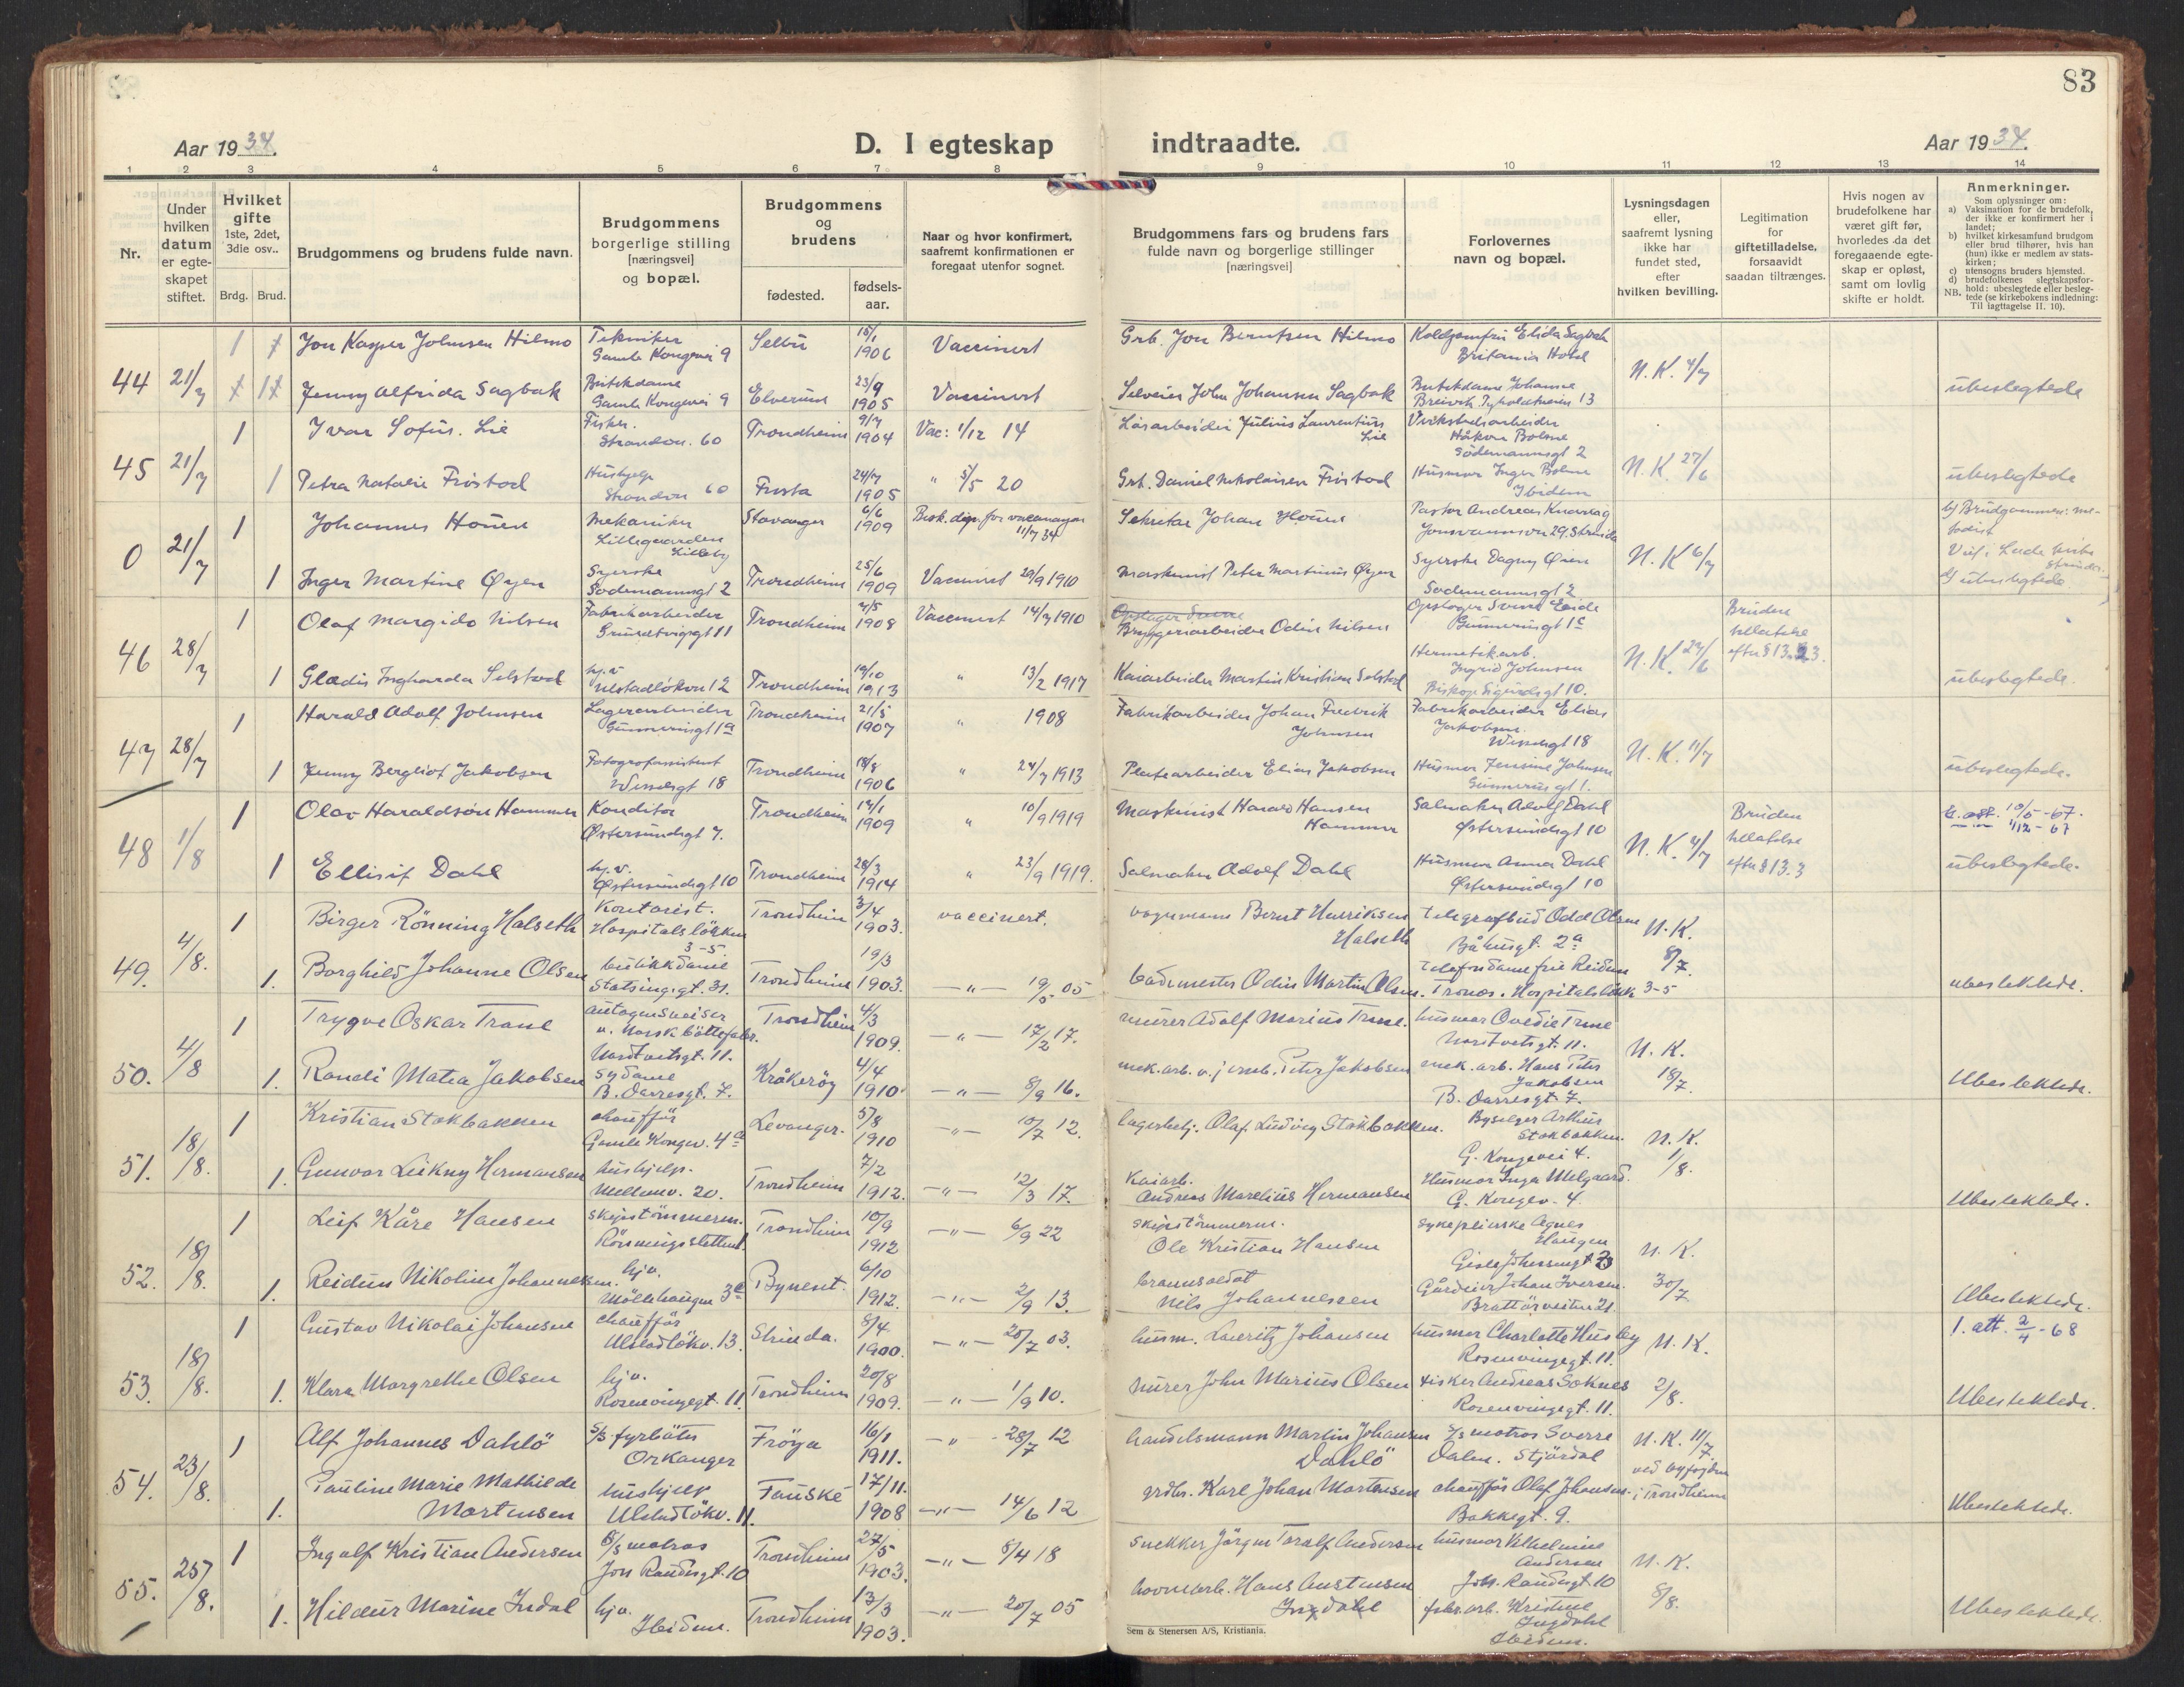 83
Aar 1934.
D. I egteskap indtraadte.
Aar 1934.
1 2 3 4 5 6 7 8 9 10 11 12 13 14
Nr.
Under hvilken datum er egteskapet stiftet.
Hvilket gifte 1ste, 2det, 3die osv..
Brdg. Brud.
Brudgommens og brudens fulde navn.
Brudgommens borgerlige stilling [næringsvei] og bopæl.
Brudgommens og brudens
fødested.
fødsels-aar.
Naar og hvor konfirmert, saafremt konfirmationen er foregaat utenfor sognet.
Brudgommens fars og brudens fars fulde navn og borgerlige stillinger [næringsvei]
Forlovernes navn og bopæl.
Lysningsdagen eller, saafremt lysning ikke har fundet sted, efter hvilken bevilling.
Legitimation for giftetilladelse, forsaavidt saadan tiltrænges.
Hvis nogen av brudefolkene har været gift før, hvorledes da det foregaaende egteskap er opløst, samt om lovlig skifte er holdt.
Anmerkninger.
Som oplysninger om:
a) Vaksination for de brudefolk, der ikke er konfirmert her i landet;
b) hvilket kirkesamfund brudgom eller brud tilhører, hvis han (hun) ikke er medlem av statskirken;
c) utensogns bruders hjemsted.
d) brudefolkenes slegtskapsforhold: ubeslegtede eller beslegtede (se kirkebokens indledning:
NB. Til iagttagelse II. 10).
44 21/7
1 Jon Kasper Johnsen Hilmo Tekniker Gamle Kongevei 9 Selbu 15/1 1906 Vaccinert Grb. Jon Berntsen Hilmo Elida Sagbak Britania Hotel N. K. 4/7
1 Jenny Alfrida Sagbak Butikdame Gamle Kongevei 9 Elverum 23/9 1905 Vaccinert John Johansen Sagbak Butikdame Johanne Breivik 13 ubeslegtede
45 21/7
1 Ivar Sofus. Lie Fisker. Strandvn. 60 Trondheim 9/7 1904 Vac: 1/12 14 Julius Laurentius Lie Håkon Bolme Södemannsgt 2 N. K. 27/6
1 Petra Natalie Fröstad Hushjelp Strandvn 60 Frosta 24/7 1905 " 5/5 20 Grb. Daniel Nikolaisen Fröstad Husmor Inger Bolme Ibidem ubeslegtede
0 21/7
1 Johannes Houen Mekaniker Lillegaarden Lilleby Stavanger 6/6 1909 Bisk. disp. for vaccination 11/7 34 Sekretær Johan Houen Pastor Andreas Knarrag Jonsvannsvn 29. Strinda N. K 6/7 b) Brudgommen: metodist
1 Inger Martine Öyen Syerske Sodemannsgt 2 Trondheim 25/6 1909 Vaccinert 29/9 1910 Maskinist Peter Martinus Öyen Syerske Dagny Öien Sodemannsgt 2 Viet i Lade kirke Strinda d) ubeslegtede
46 28/7
1 Olaf Margido Nilsen Fabrikarbeider Grundtvigsgt 11 Trondheim 4/5 1908 Vaccinert 14/7 1910 Bryggeriarbeider Odin Nilsen Opsager Svend Eide Gunnerusgt 1c N. K. 24/6 Bruden tillatelse efter § 13.3.
1 Gladis Ingharda Selstad hj.v. Ulstadlökvn 12 Trondheim 19/10 1913 " 13/2 1917 Kaiarbeider Martin Kristian Selstad Hermetik.arb. Ingrid Johnsen Biskop Sigurdsgt 10. ubeslegtede.
47 28/7
1 Harald Adolf Johnsen Lagerarbeider Gunnerusgt 1a Trondheim 21/5 1907 " 1908 Fabrikarbeider Johan Fredrik Johnsen Fabrikarbeider Elias Jakobsen. Wesselsgt 18 N. K. 11/7
1 Jenny Bergliot Jakobsen Fotografassistent Wesselsgt 18 Trondheim 18/8 1906 " 24/7 1913 Platearbeider Elias Jakobsen Husmor Jensine Johnsen Gunnerusgt 1. ubeslegtede.
48 1/8
1 Olav Haraldson Hammer Konditor Östersundsgt 7. Trondheim 14/1 1909 " 10/9 1919 Maskinist Harald Hansen Hammer Salmaker Adolf Dahl Östersundsgt 10 N. K. 4/7 Bruden tillatelse efter § 13.3 l. att. 10/5 -67. 4/12 - 67
1 Ellisif Dahl hj.v. Östersundsgt 10 Trondheim 28/3 1914 " 23/9 1919. Salmaker Adolf Dahl Husmor Anna Dahl Östersundsgt 10 ubeslegtede.
49. 4/8.
1 Birger Rönning Halseth Kontorist. Hospitalslökken 3-5 Trondheim 3/4 1903. vaccinert. vognmann Bernt Henriksen Halseth telegrafbud Odd Olsen Båhusgt. 2a N. K. 8/7.
1. Borghild Johanne Olsen butikkdame Statsingsgt. 31. Trondheim 19/3 1903. —"— 19/5 05 bademester Odin Martin Olsen. telefondame frk Reidun Trones. Hospitalslökk 3-5 ubeslektede.
50. 4/8
1 Trygve Oskar Trane autogensveiser v. Norsk böttefabr. Nordtvetsgt. 11. Trondheim 4/3 1909. —"— 17/2 17. murer Adolf Marius Trane. husmor Ovedie Trane Nordtvetsgt. 11. N. K. 18/7.
1. Randi Matea Jakobsen sydame B. Darresgt. 7. Kråkeröy 4/4 1910. —"— 8/9 16. mek. arb. v. jernb. Peter Jakobsen mek. arb. Hans Peter Jakobsen B. Darresgt 7. Ubeslektede.
51. 18/8.
1 Kristian Stokbakken chaufför Gamle Kongev. 4a Levanger. 5/8 1910 —"— 10/7 12. lagerbetj. Olaf Ludvig Stokbakken. Byselger Arthur Stokbakken. G. Kongevei 4. N. K. 1/8.
1. Gunvor Leikny Hermansen hushjelp. Mellomv. 20. Trondheim 7/2 1912. —"— 12/3 17. Kaiarb. Andreas Marelius Hermansen Husmor Inga Melgaard. G. Kongev. 4. Ubeslektede.
52. 18/8.
1 Leif Kåre Hansen skipstömmerm. Rönningsletten 1. Trondheim 10/9 1912 —"— 6/9 22 skipstömmerm. Ole Kristian Hansen sykepleierske Agnes Haugen N. K. 30/7
1. Reidun Nikoline Johannessen. hjv. Möllehaugen 3e Bynesset. 6/10 1912. —"— 2/9 13. brannsoldat Nils Johannessen Gårdeier Johan Iversen. Brattörveiten 21. Ubeslektede.
53. 18/8.
1 Gustav Nikolai Johansen chaufför Ulstadlökv. 13. Strinda. 8/4 1900. —"— 20/7 03. husm. Lauritz Johansen husmor Charlotte Husby Rosenvingegt. 11. N. K. 2/8. l. att. 2/4 -68
1. Klara Margrethe Olsen hjv. Rosenvingegt. 11. Trondheim 20/8 1909. —"— 1/9 10. murer John Marius Olsen fisker Andreas Soknes Rosenvingegt. 11. Ubeslektede.
54. 23/8.
1 Alf Johannes Dahlö S/S fyrböter Orkanger Fröya 16/1 1911. —"— 28/7 12 handelsmann Martin Johansen Dahlö S/S matros Sverre Dalen. Stjördal N. K. 11/7 ved byfogden i Trondheim
1. Pauline Marie Mathilde Mortensen hushjelp Ulstadlökv. 11. Fauske 17/11. 1908 —"— 14/6 12 grdbr. Karl Johan Mortensen chaufför Olaf Johansen. Bakkegt. 9. Ubeslektede.
55. 25/8.
1 Ingolf Kristian Andersen S/S matros Johs Randersgt. 10 Trondheim 27/5 1903. —"— 8/4 18 snekker Jörgen Toralf Andersen husmor Vilhelmine Andersen Joh. Randersgt 10 N. K. 8/8.
1. Hildur Marine Indal hjv. Ibidem. Trondheim 13/3 1903. —"— 20/7 05 havnearb. Hans Austensen Ingdahl fabr. arb. Kristine Ingdahl Ibidem. Ubeslektede.
Sem & Stenersen A/S, Kristiania.